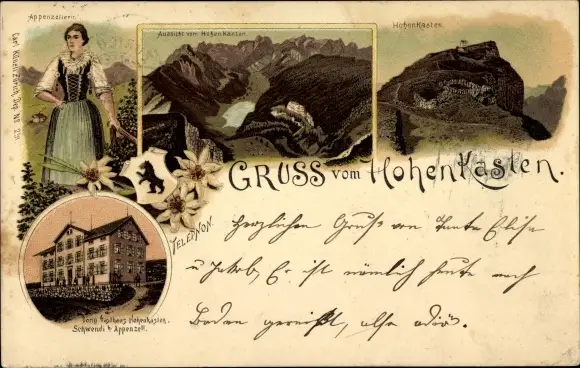 Appenzellerin.
Aussicht vom Hohenkasten.
Hohenkasten.
Carl Künzli, Zürich, Dep. No 239.
GRUSS vom Hohenkasten.
TELEPHON.
Herzlichen Gruß von Tante Elise
u Jakob, Er ist nämlich heute nach
Baden gereist, also adiö.
Gasthaus Hohenkasten.
Schwendi b. Appenzell.